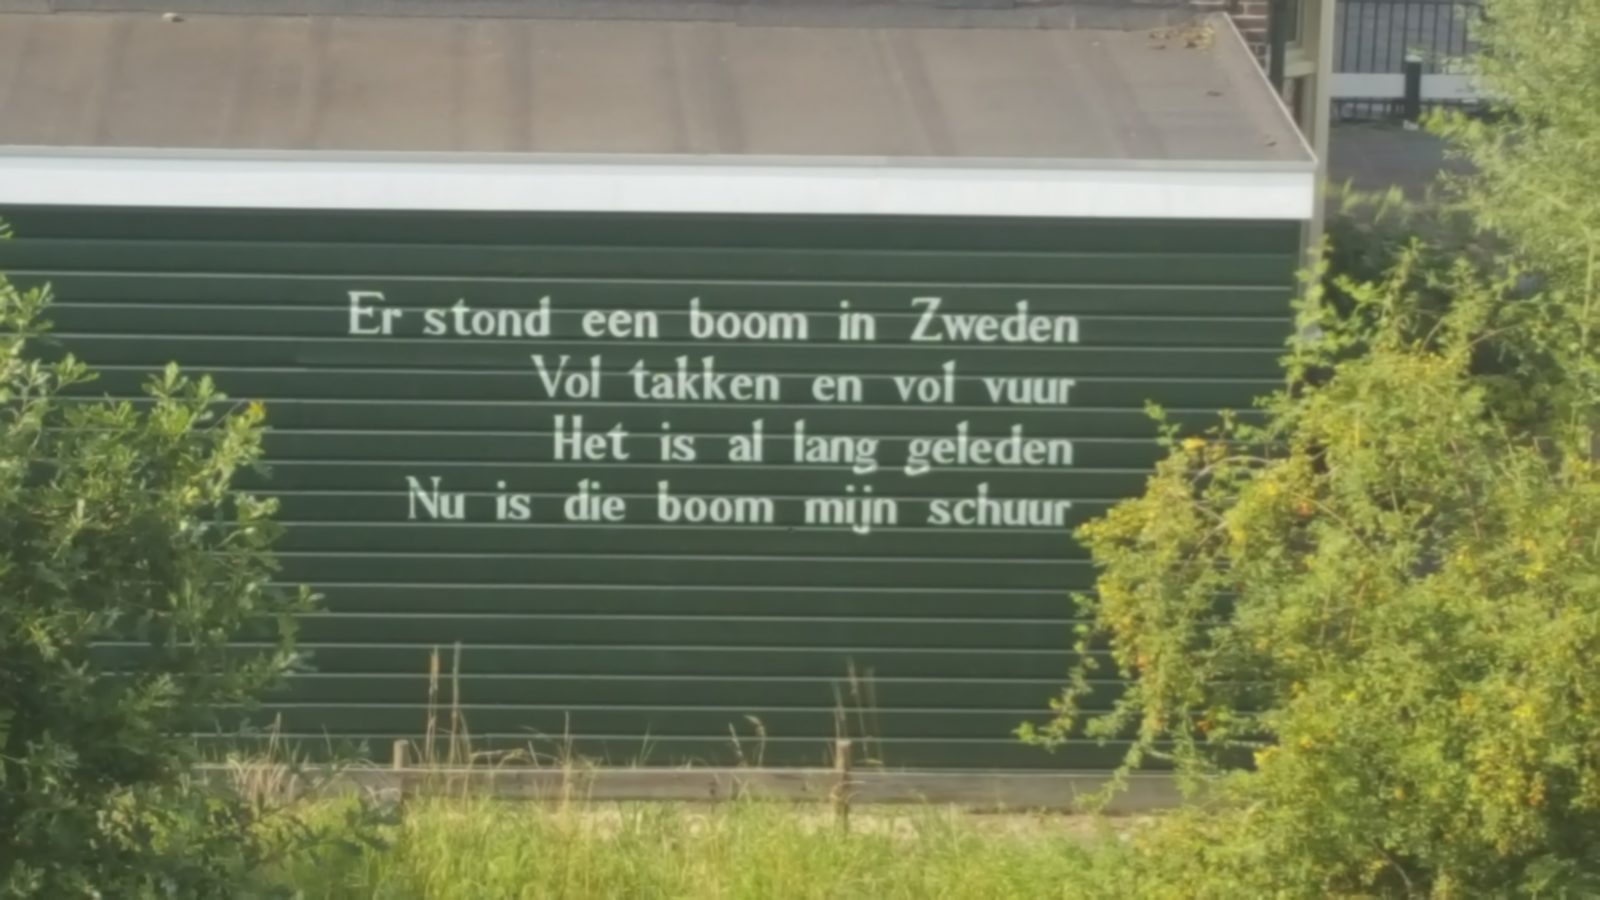 Er stond een boom in Zweden
Vol takken en vol vuur
Het is al lang geleden
Nu is die boom mijn schuur